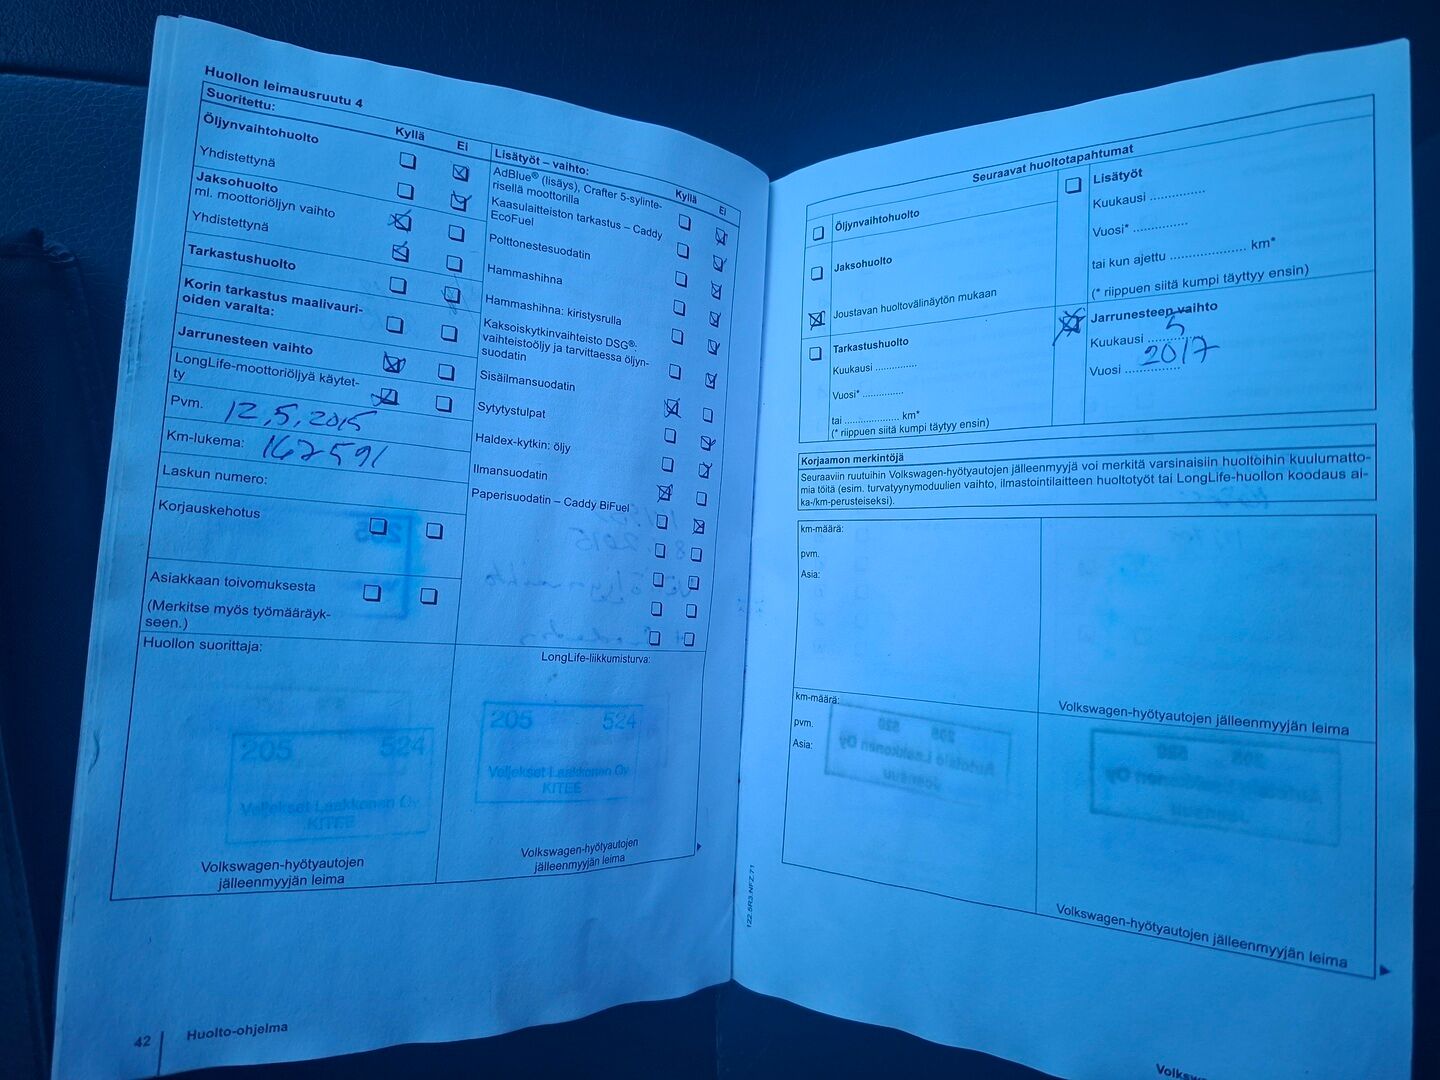 Huollon leimausruutu 4
Suoritettu:
Kyllä Ei
Öljynvaihtohuolto
Yhdistettynä
Jaksohuolto
ml. moottoriöljyn vaihto
Yhdistettynä
Tarkastushuolto
Korin tarkastus maalivauri-
oiden varalta:
Jarrunesteen vaihto
LongLife-moottoriöljyä käytet-
ty
Pvm. 12.5.2015
Km-lukema: 162591
Laskun numero:
Korjauskehotus
Asiakkaan toivomuksesta
(Merkitse myös työmääräyk-
seen.)
Lisätyöt – vaihto:
Kyllä Ei
AdBlue® (lisäys), Crafter 5-sylinte-
risellä moottorilla
Kaasulaitteiston tarkastus – Caddy
EcoFuel
Polttonestesuodatin
Hammashihna
Hammashihna: kiristysrulla
Kaksoiskytkinvaihteisto DSG®-
vaihteistoöljy ja tarvittaessa öljyn-
suodatin
Sisäilmansuodatin
Sytytystulpat
Haldex-kytkin: öljy
Ilmansuodatin
Paperisuodatin – Caddy BiFuel
Huollon suorittaja:
205 524
Veljekset Laakkonen Oy
KITEE
Volkswagen-hyötyautojen
jälleenmyyjän leima
LongLife-liikkumisturva:
205 524
Veljekset Laakkonen Oy
KITEE
Volkswagen-hyötyautojen
jälleenmyyjän leima
42 Huolto-ohjelma
122.5R3.NFZ.71
Seuraavat huoltotapahtumat
Öljynvaihtohuolto
Jaksohuolto
Joustavan huoltovälinäytön mukaan
Tarkastushuolto
Kuukausi ..............
Vuosi* ..............
tai .................... km*
(* riippuen siitä kumpi täytyy ensin)
Lisätyöt
Kuukausi ..............
Vuosi* ..............
tai kun ajettu .................... km*
(* riippuen siitä kumpi täyttyy ensin)
Jarrunesteen vaihto
Kuukausi 5
Vuosi 2017
Korjaamon merkintöjä
Seuraaviin ruutuihin Volkswagen-hyötyautojen jälleenmyyjä voi merkitä varsinaisiin huoltoihin kuulumatto-
mia töitä (esim. turvatyynymoduulien vaihto, ilmastointilaitteen huoltotyöt tai LongLife-huollon koodaus ai-
ka-/km-perusteiseksi).
km-määrä:
pvm.
Asia:
Volkswagen-hyötyautojen jälleenmyyjän leima
km-määrä:
pvm.
Asia:
Volkswagen-hyötyautojen jälleenmyyjän leima